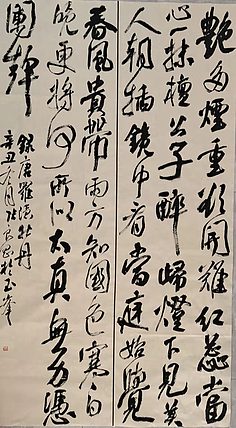 艷多煙重欲開難紅蕊當
心一抹檀公子醉歸燈下見美
人朝插鏡中看當庭始覺
春風貴帶雨方知國色寒日
晚更將何所似太真無力憑
闌幹
錄唐羅隱牡丹
辛丑 月 於玉峯